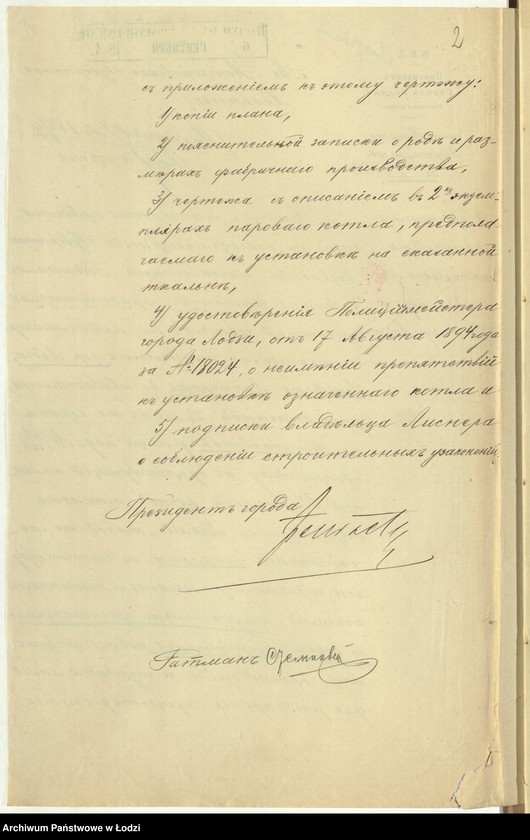 2
съ приложеніемъ къ этому чертежу:
1) копіи плана,
2) пояснительной записки о родѣ и раз-
мѣрахъ фабричнаго производства,
3) чертежа съ описаніемъ въ 2хъ экзем-
плярахъ пароваго котла, предпола
гаемаго къ установкѣ на сказанной
ткальнѣ,
4) удостовѣренія Полиціймейстера
города Лодзи, отъ 17 Августа 1894 года
за № 18024, о неимѣніи препятствій
къ установкѣ означеннаго котла и
5) подписки владѣльца Лиснера
о соблюденіи строительныхъ узаконеній.
Президентъ города
Archiwum Państwowe w Łodzi